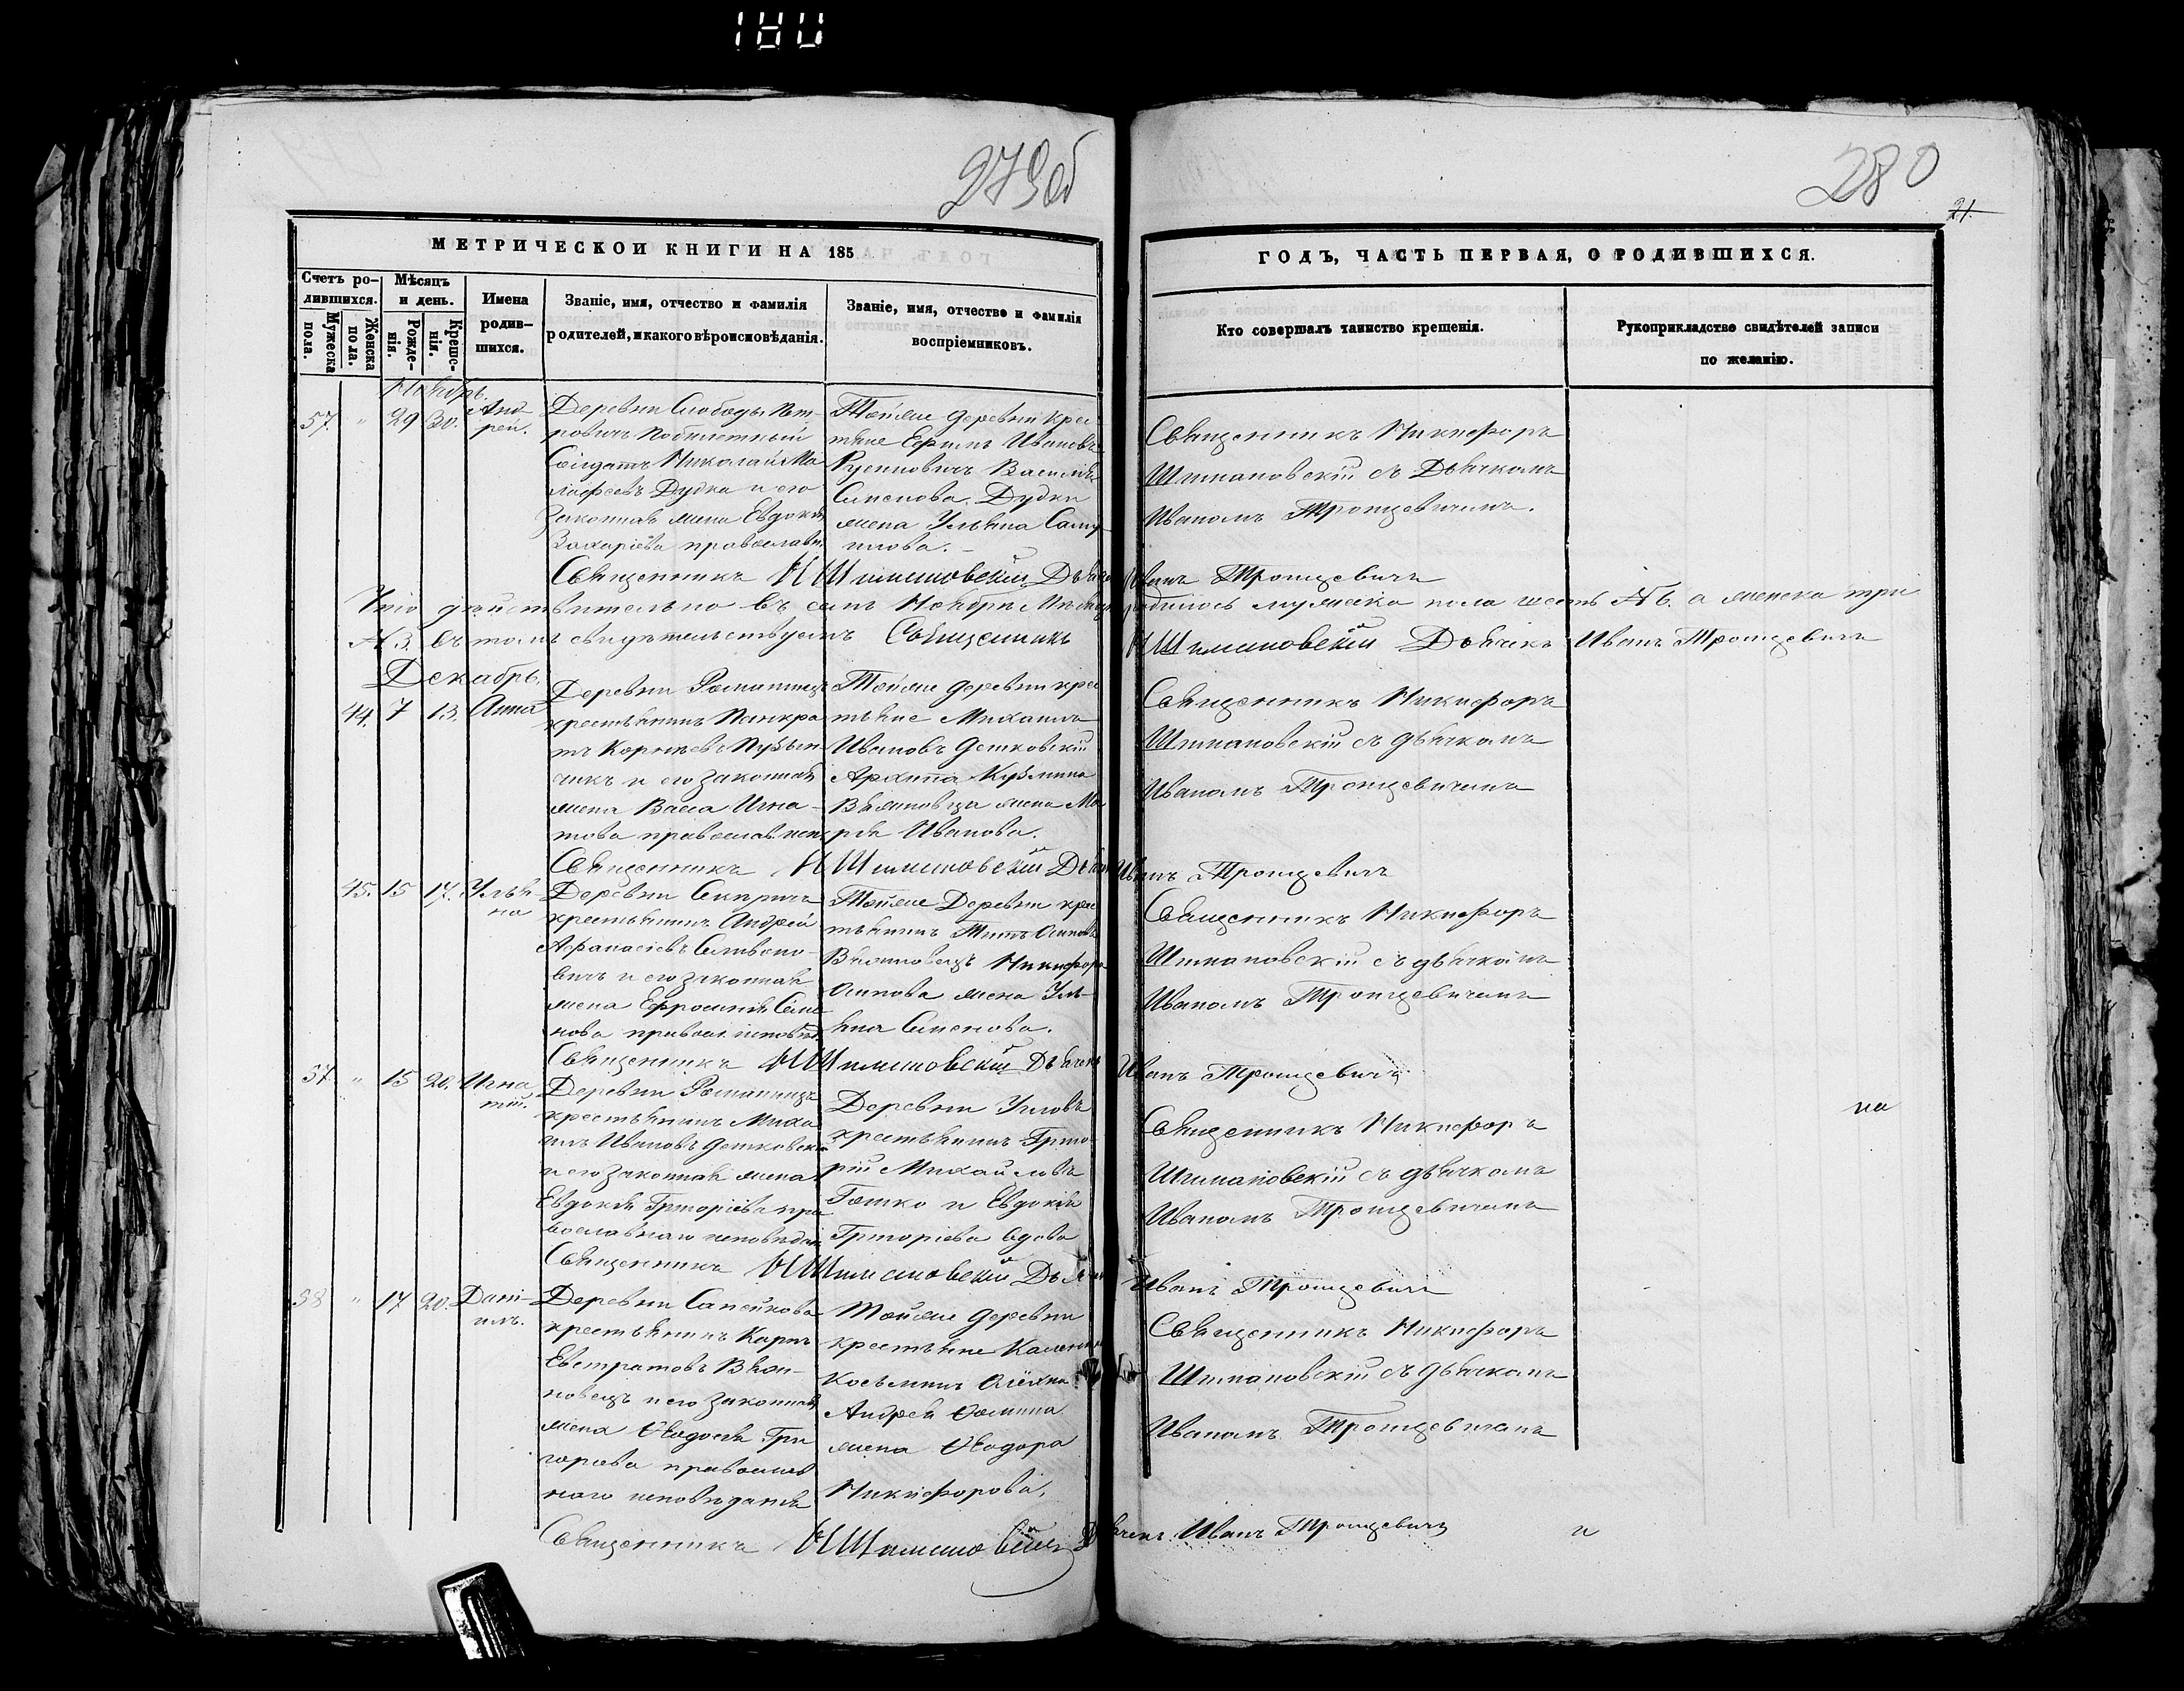 180
279об
280
21.
МЕТРИЧЕСКОЙ КНИГИ НА 185
ГОДЪ, ЧАСТЬ ПЕРВАЯ, О РОДИВШИХСЯ.
Счетъ ро-
дившихся.
Мужеска
пола.
Женска
пола.
Мѣсяцъ
и день.
Рожде-
нія.
Креще-
нія.
Имена
родив-
шихся.
Званіе, имя, отчество и фамилія
родителей, и какого вѣроисповѣданія.
Званіе, имя, отчество и фамилія
воспріемниковъ.
Кто совершалъ таинство крещенія.
Рукоприкладство свидѣтелей записи
по желанію.
Ноябрь.
57. " 29 30. Анд-
рей.
Деревни Слободы Пет-
ровичъ побилетный
Солдатъ Николай Ма
Дудка и его
Законная жена Евдокія
Захаріева православн.
Тойже деревни крес
тяне Ефимъ Ивановъ
Василія
Семенова Дудки
жена Ульяна Саму
илова.
Священникъ Никифоръ
Шимановскій съ Дьячкомъ
Иваномъ Тромцевичемъ.
Священникъ Н Шимановскій Дьячекъ Иванъ Тромцевичъ
Что дѣйствительно въ семъ Ноябрѣ Мѣсяцѣ родилось мужеска пола шесть № 6. а женска три
№ 3. въ томъ свидѣтельствуемъ Священникъ Н Шимановскій Дьячекъ Иванъ Тромцевичъ
Декабрь.
44. 7 13. Анна
Деревни Романищъ
крестьянинъ Панкра
тъ Корнѣевъ
чикъ и его законная
жена Васса Игна-
това православ. исп.
Тойже деревни крес
тяне Михаилъ
Ивановъ Дешковскій
Архипа Кузмина
Вяжновца жена Ма
рѳа Иванова.
Священникъ Никифоръ
Шимановскій съ дьячкомъ
Иваномъ Тромцевичемъ
Священникъ Н Шимановскій Дьячекъ Иванъ Тромцевичъ
45. 15 17. Улья-
на
Деревни
крестьянинъ Андрей
Афанасіевъ
вичъ и его законная
жена Ефросинія Семе
нова правосл. исповѣд.
Тойже Деревни крес
тянинъ Титъ Осиповъ
Вяжновецъ Никифора
Осипова жена Уль-
яна Семенова.
Священникъ Никифоръ
Шимановскій съ дьячкомъ
Иваномъ Тромцевичемъ
Священникъ Н Шимановскій Дьячекъ Иванъ Тромцевичъ
37. " 15 20. Игна
тій.
Деревни Романищъ
крестьянинъ Миха
илъ Ивановъ Дешковскій
и его законная жена
Евдокія Григоріева пра
вославнаго исповѣдан.
Деревни Угловъ
крестьянинъ Григо
рій Михайловъ
Гошко и Евдокія
Григоріева вдова
Священникъ Никифоръ
Шимановскій съ дьячкомъ
Иваномъ Тромцевичемъ
на
Священникъ Н Шимановскій Дьячекъ Иванъ Тромцевичъ
38 " 17 20. Дані-
илъ.
Деревни Сапейкова
крестьянинъ Карпъ
Евстратовъ Вяж-
новецъ и его законная
жена Ѳеодосія Гри
горіева православ
наго исповѣданія
Тойже деревни
крестьяне
Косьминъ
Андрея Ѳомина
жена Ѳеодора
Никифорова.
Священникъ Никифоръ
Шимановскій съ дьячкомъ
Иваномъ Тромцевичемъ
Священникъ Н Шимановскій Дьячекъ Иванъ Тромцевичъ
и